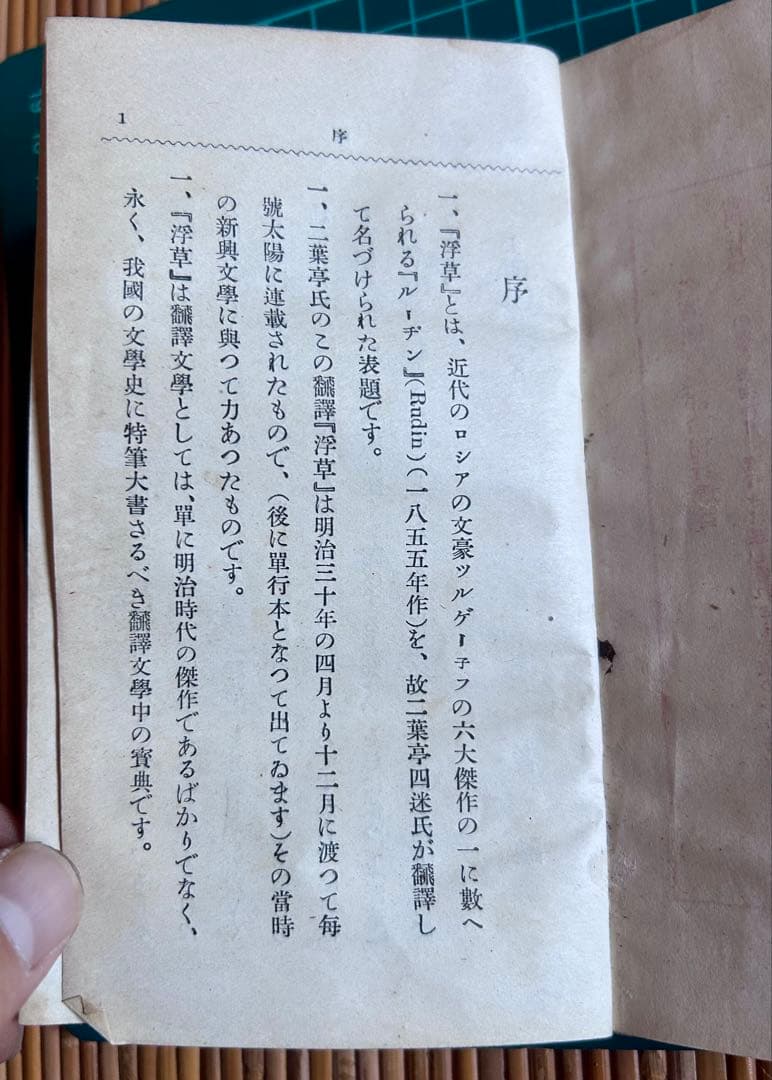 1
序
序
一、『浮草』とは、近代のロシアの文豪ツルゲー子フの六大傑作の一に數へ
られる『ルーヂン』(Rudin)(一八五五年作)を、故二葉亭四迷氏が飜譯し
て名づけられた表題です。
一、二葉亭氏のこの飜譯『浮草』は明治三十年の四月より十二月に渡つて每
號太陽に連載されたもので、(後に單行本となつて出てゐます)その當時
の新興文學に與つて力あつたものです。
一、『浮草』は飜譯文學としては、單に明治時代の傑作であるばかりでなく、
永く、我國の文學史に特筆大書さるべき飜譯文學中の寳典です。